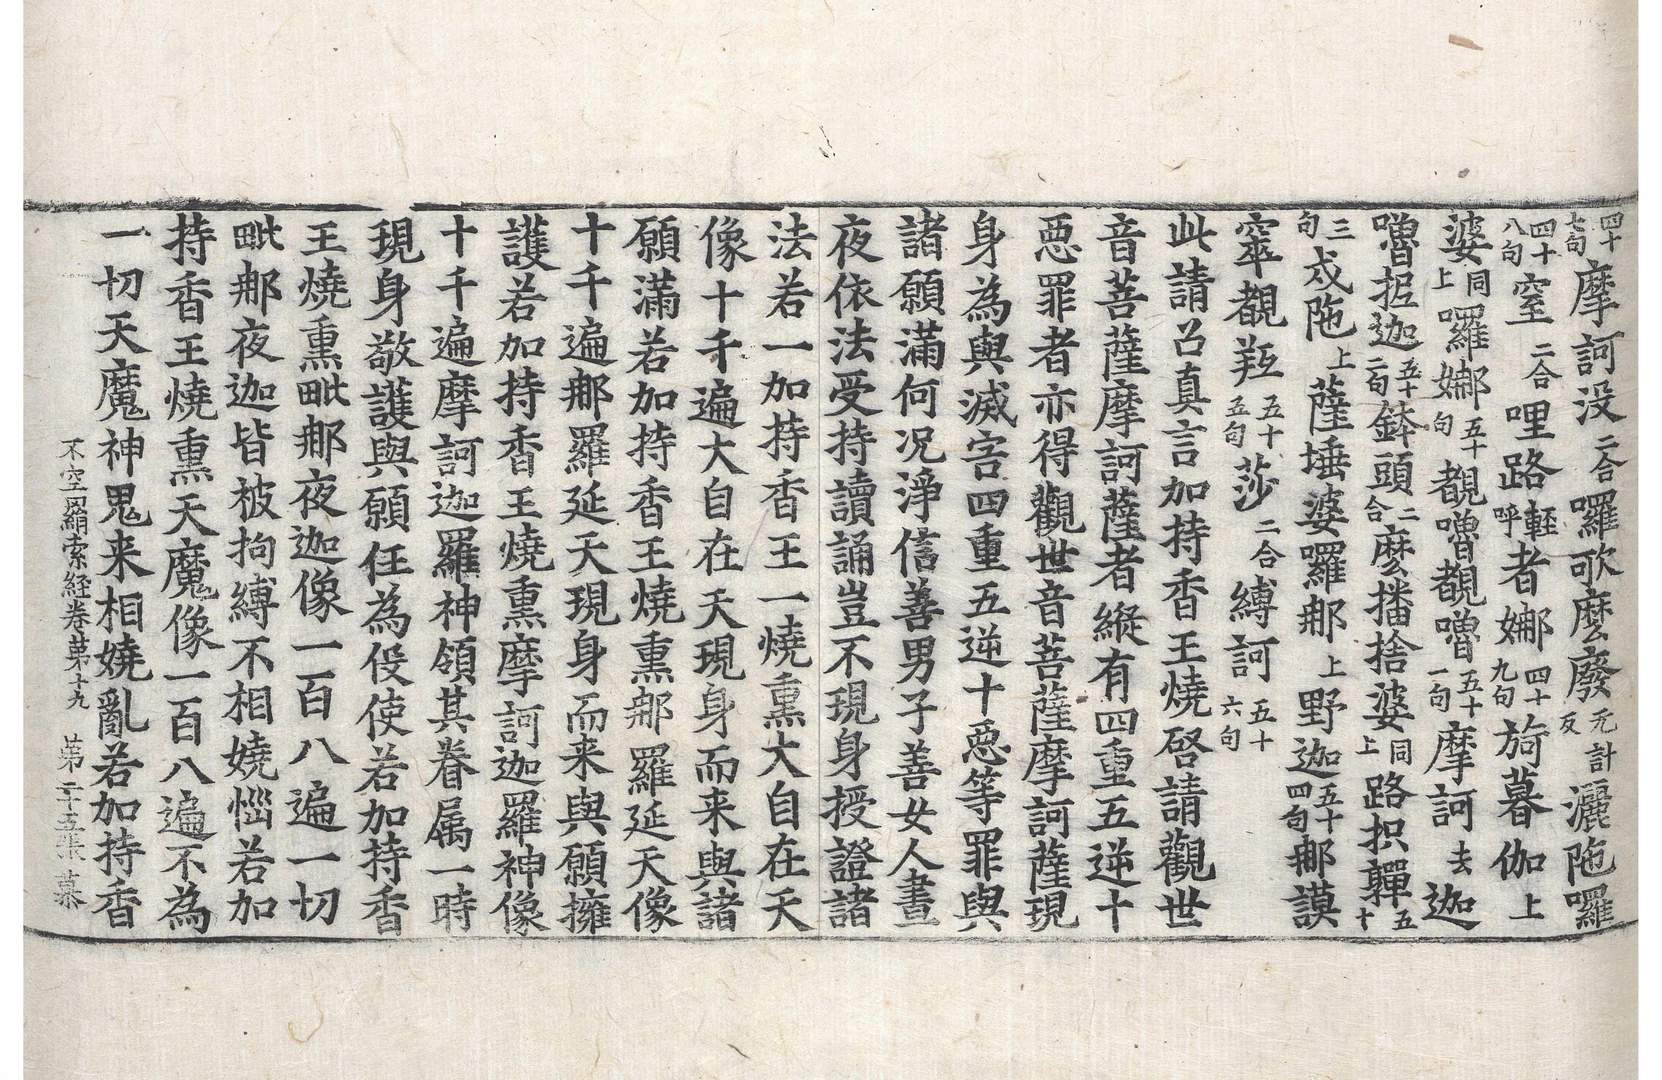 四十七句摩訶没二合囉歌麼廢无計反灑陁囉
四十八句窒二合哩路輕呼者娜四十九句旖暮伽上
婆同上囉娜五十句覩嚕覩嚕五十一句摩訶去迦
嚕抳迦五十二句鉢頭二合麽播捨婆同上路抧鸅五十
三句戍陁上薩埵婆囉那上野迦五十四句那謨
窣覩羝五十五句莎二合縛訶五十六句
此請召真言加持香王燒啓請觀世
音菩薩摩訶薩者縱有四重五逆十
惡罪者亦得觀世音菩薩摩訶薩現
身為與滅害四重五逆十惡等罪與
諸願滿何况淨信善男子善女人晝
夜依法受持讀誦豈不現身授證諸
法若一加持香王一燒熏大自在天
像十千遍大自在天現身而来與諸
願滿若加持香王燒熏那羅延天像
十千遍那羅延天現身而来與願擁
護若加持香王燒熏摩訶迦羅神像
十千遍摩訶迦羅神領其眷属一時
現身敬護與願任為伇使若加持香
王燒熏毗那夜迦像一百八遍一切
毗那夜迦皆被拘縛不相嬈惱若加
持香王燒熏天魔像一百八遍不為
一切天魔神鬼来相嬈亂若加持香
不空羂索経卷第十九 第二十五張 慕